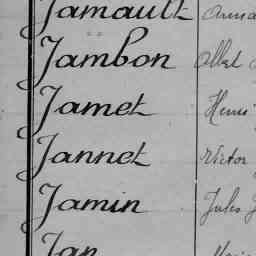 Jamault
Jambon Albert
Jamet Henri
Jannet Victor
Jamin Jules
Jan